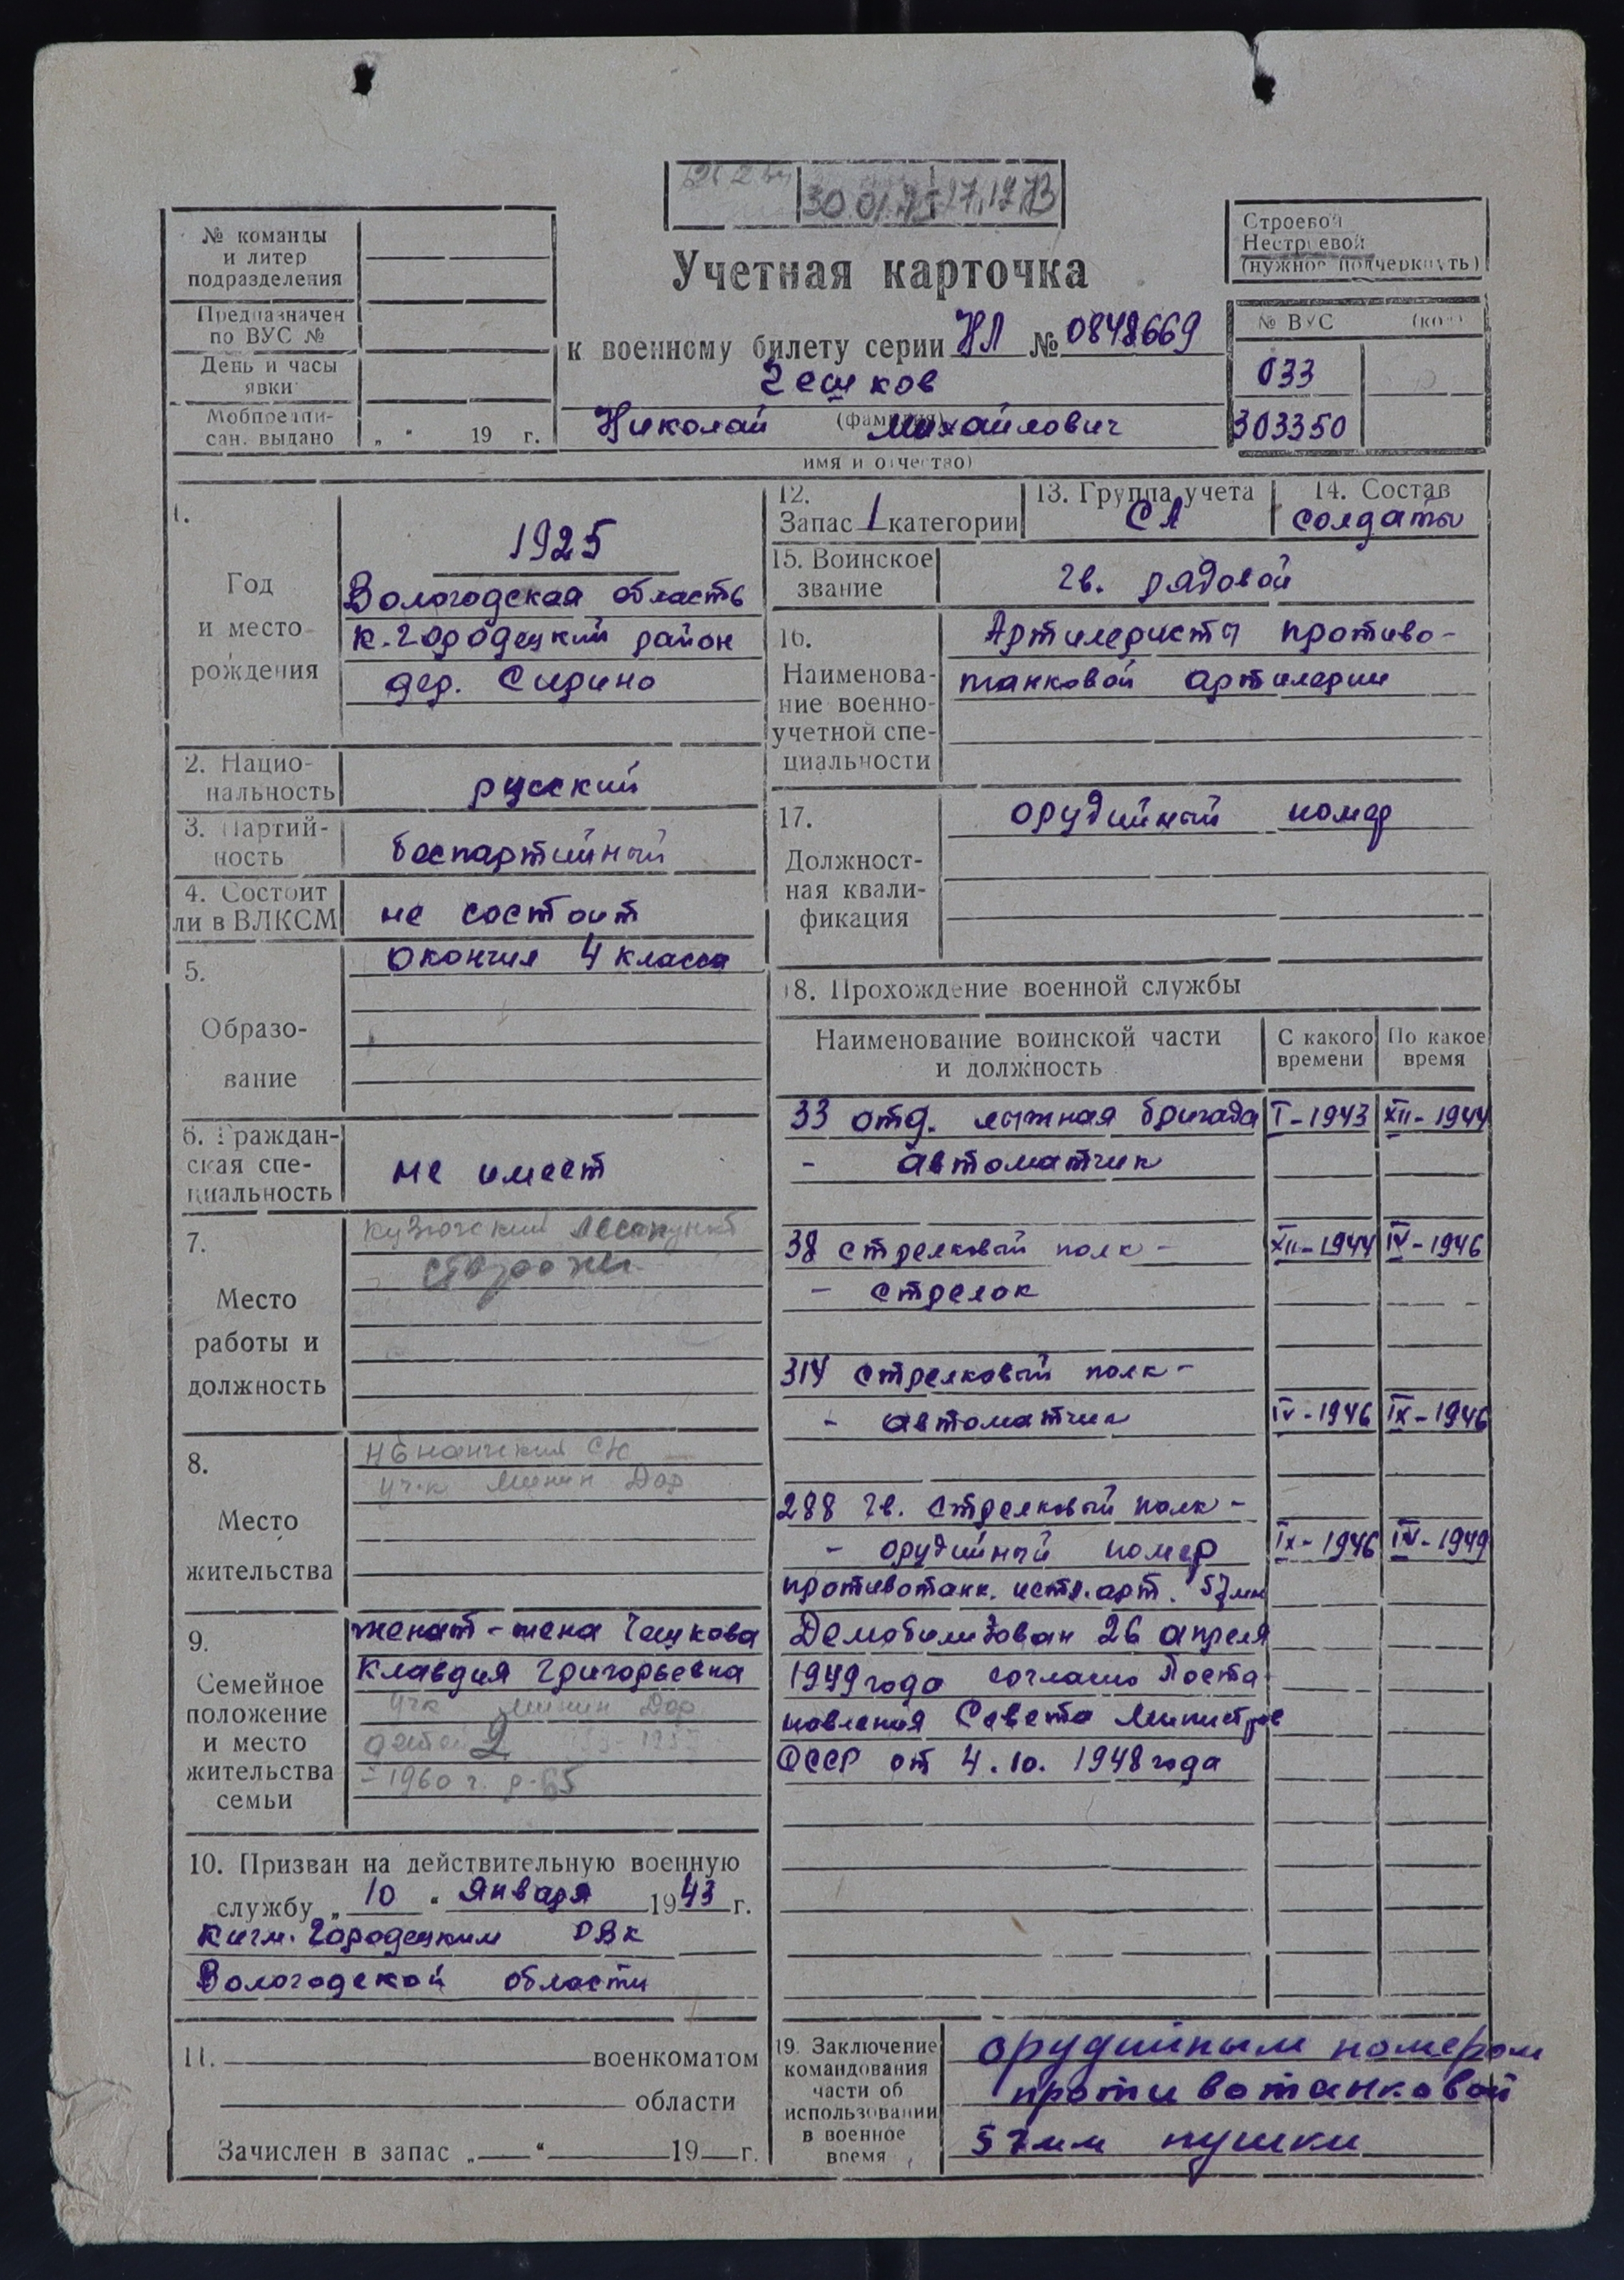 30.01.75
№ команды
и литер
подразделения
Предназначен
по ВУС №
День и часы
явки
Мобпредпи-
сан. выдано „ " 19 г.
Учетная карточка
к военному билету серии НЛ № 0848669
Чешков
(фамилия)
Николай Михайлович
имя и отчество)
Строевой
Нестроевой
(нужное подчеркнуть)
№ ВУС (код)
033
303350
1.
Год
и место
рождения
1925
Вологодская область
К.Городецкий район
дер. Сирино
2. Нацио-
нальность
русский
3. Партий-
ность
беспартийный
4. Состоит
ли в ВЛКСМ
не состоит
5.
Образо-
вание
окончил 4 класса
6. Граждан-
ская спе-
циальность
не имеет
7.
Место
работы и
должность
лесопункт
сторож
8.
Место
жительства
уч-к Минин Дор
9.
Семейное
положение
и место
жительства
семьи
женат - жена Чешкова
Клавдия Григорьевна
уч-к Минин Дор
детей 2
- 1960 г. р. 65
10. Призван на действительную военную
службу „ 10 " Января 1943 г.
Кичм. Городецким РВК
Вологодской области
11. военкоматом
области
Зачислен в запас „ " 19 г.
12.
Запас 1 категории
13. Группа учета
СА
14. Состав
солдаты
15. Воинское
звание
гв. рядовой
16.
Наименова-
ние военно-
учетной спе-
циальности
Артилеристы противо-
танковой артилерии
17.
Должност-
ная квали-
фикация
орудийный номер
18. Прохождение военной службы
Наименование воинской части
и должность
С какого
времени
По какое
время
33 отд. лыжная бригада I-1943 XII-1944
- автоматчик
38 стрелковый полк - XII-1944 IV-1946
- стрелок
314 стрелковый полк -
- автоматчик IV-1946 IX-1946
288 гв. стрелковый полк -
- орудийный номер IX-1946 IV-1949
противотанк. истр. арт. 57мм
Демобилизован 26 апреля
1949 года согласно Поста
новления Совета Министров
СССР от 4.10.1948 года
19. Заключение
командования
части об
использовании
в военное
время
орудийным номером
противотанковой
57мм пушки